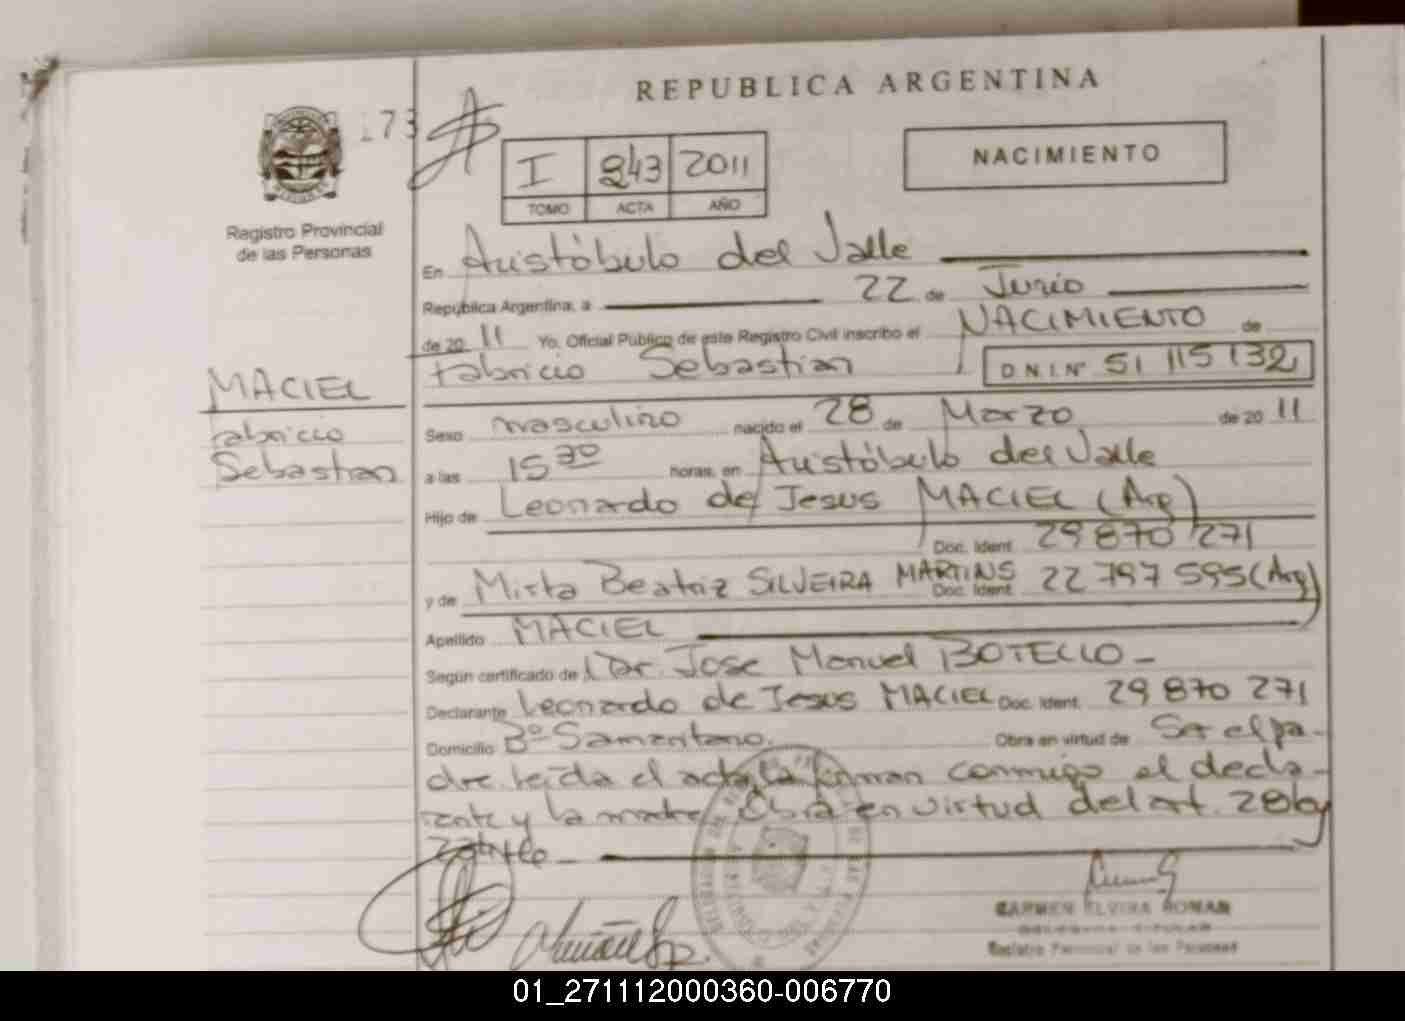 REPUBLICA ARGENTINA
173
I 243 2011
TOMO ACTA AÑO
NACIMIENTO
Registro Provincial
de las Personas
En Aristóbulo del Valle
República Argentina, a 22 de Junio
de 20 11 Yo, Oficial Público de este Registro Civil inscribo el NACIMIENTO de
Fabricio Sebastian D.N.I.Nº 51 115 132
MACIEL
Fabricio
Sebastian
Sexo masculino nacido el 28 de Marzo de 20 11
a las 15 30 horas, en Aristóbulo del Valle
Hijo de Leonardo de Jesus MACIEL (Arg)
Doc. Ident. 29 870 271
y de Mirta Beatriz SILVEIRA MARTINS Doc. Ident. 22 797 595 (Arg)
Apellido MACIEL
Según certificado de Dr. Jose Manuel BOTELLO -
Declarante Leonardo de Jesus MACIEL Doc. Ident. 29 870 271
Domicilio Bº Samaritano. Obra en virtud de Ser el pa-
dre. leída el acta la firman conmigo el decla-
rante y la madre. Obra en virtud del art. 28 ley
CARMEN ELVIRA ROMAN
DELEGADA TITULAR
Registro Provincial de las Personas
01_271112000360-006770